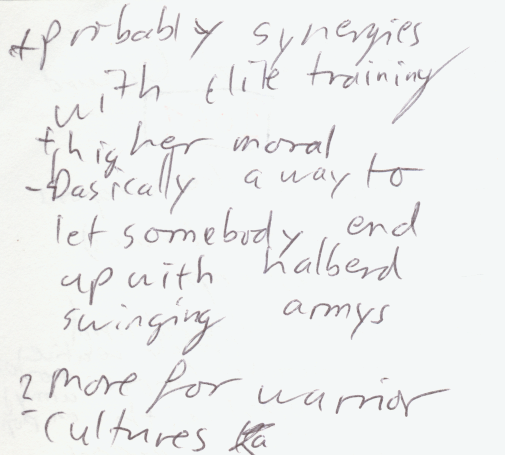 +probably synergies
with elite training
+higher moral
-basically a way to
let somebody end
up with halberd
swinging armys
? more for warrior
- cultures